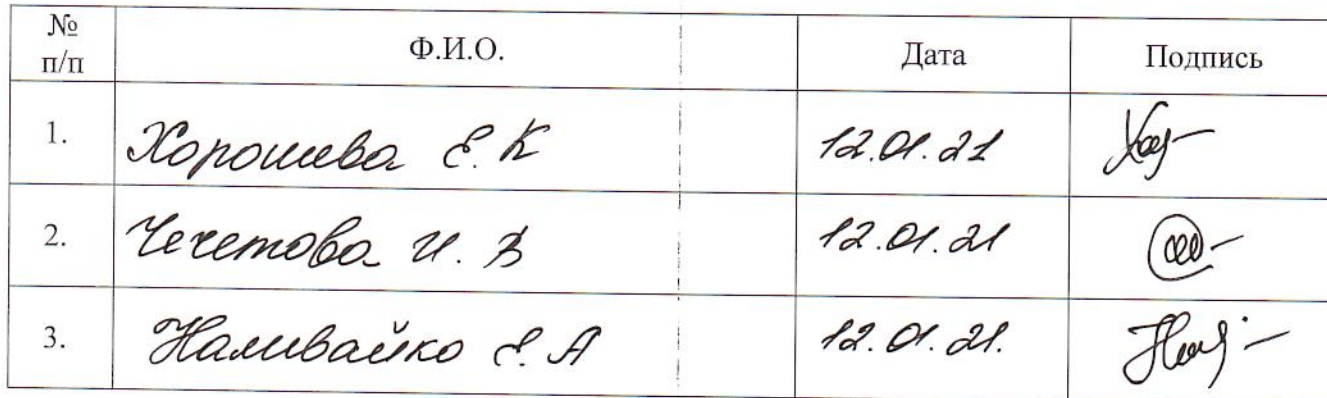 № п/п Ф.И.О. Дата Подпись
1. Хорошева Е. К 12.01.21
2. Чечетова И. В 12.01.21
3. Наливайко Е. А 12.01.21.